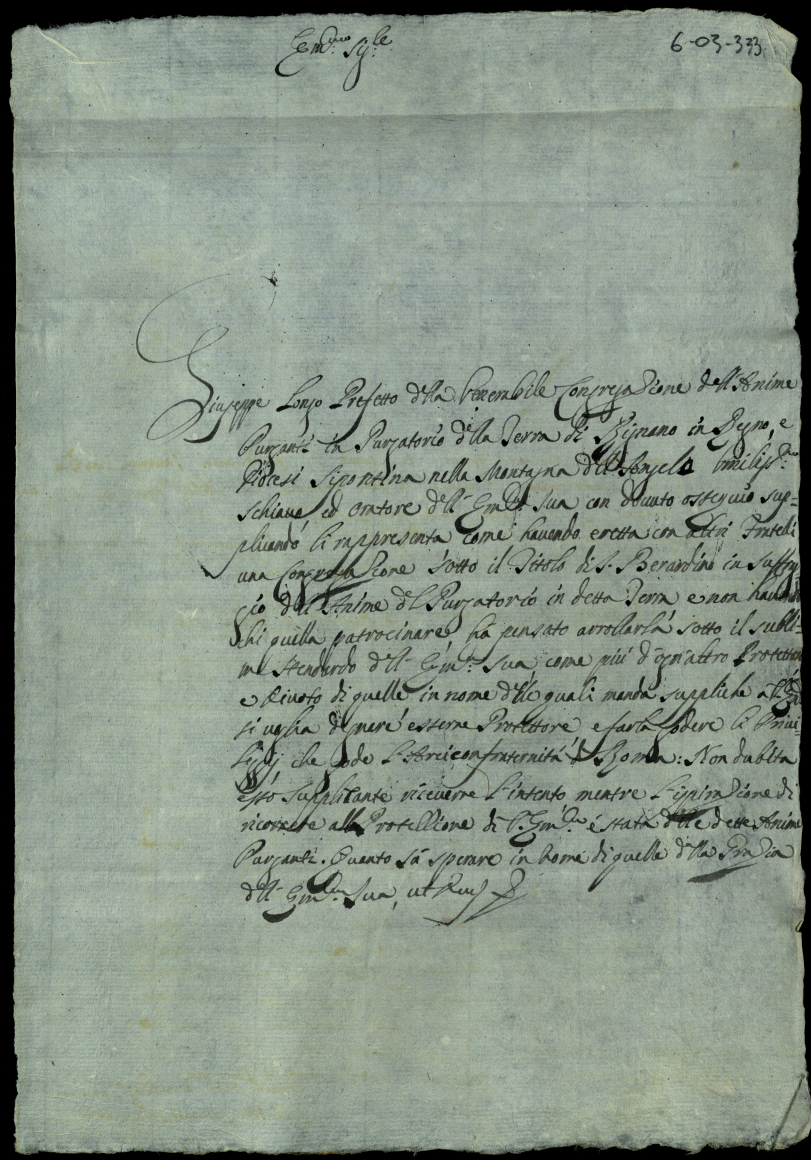 Em.mo Sig.re
6-03-333
Giuseppe Longo Prefetto della Venerabile Congregatione dell'Anime
Purganti in Purgatorio della Terra di Rignano in Regno, e
Diocesi Sipontina nella Montagna dell'Angelo humiliss.mo
schiavo ed oratore dell'Em.za Sua con dovuto ossequio sup=
plicando li rappresenta come havendo eretta con altri Fratelli
una Congregatione sotto il Titolo di S. Berardino in suffra
gio dell'Anime del Purgatorio in detta Terra e non havendo
chi quella patrocinare, ha pensato arrollarla sotto il subli=
me stendardo dell'Em.za Sua come più d'ogn'altro Protettore
e divoto di quelle in nome delle quali manda suppliche a
si voglia degnare esserne Protettore e farla godere li Privi=
legij che gode l'Arciconfraternità di Roma: Non dubita
esso supplicante riceverne l'intento mentre l'ispiratione di
ricorrere alla Protettione di V. Em.za è stata delle dette Anime
Purganti. Quanto sà sperare in nome di quelle della Gratia
dell'Em.za Sua, ut Deus